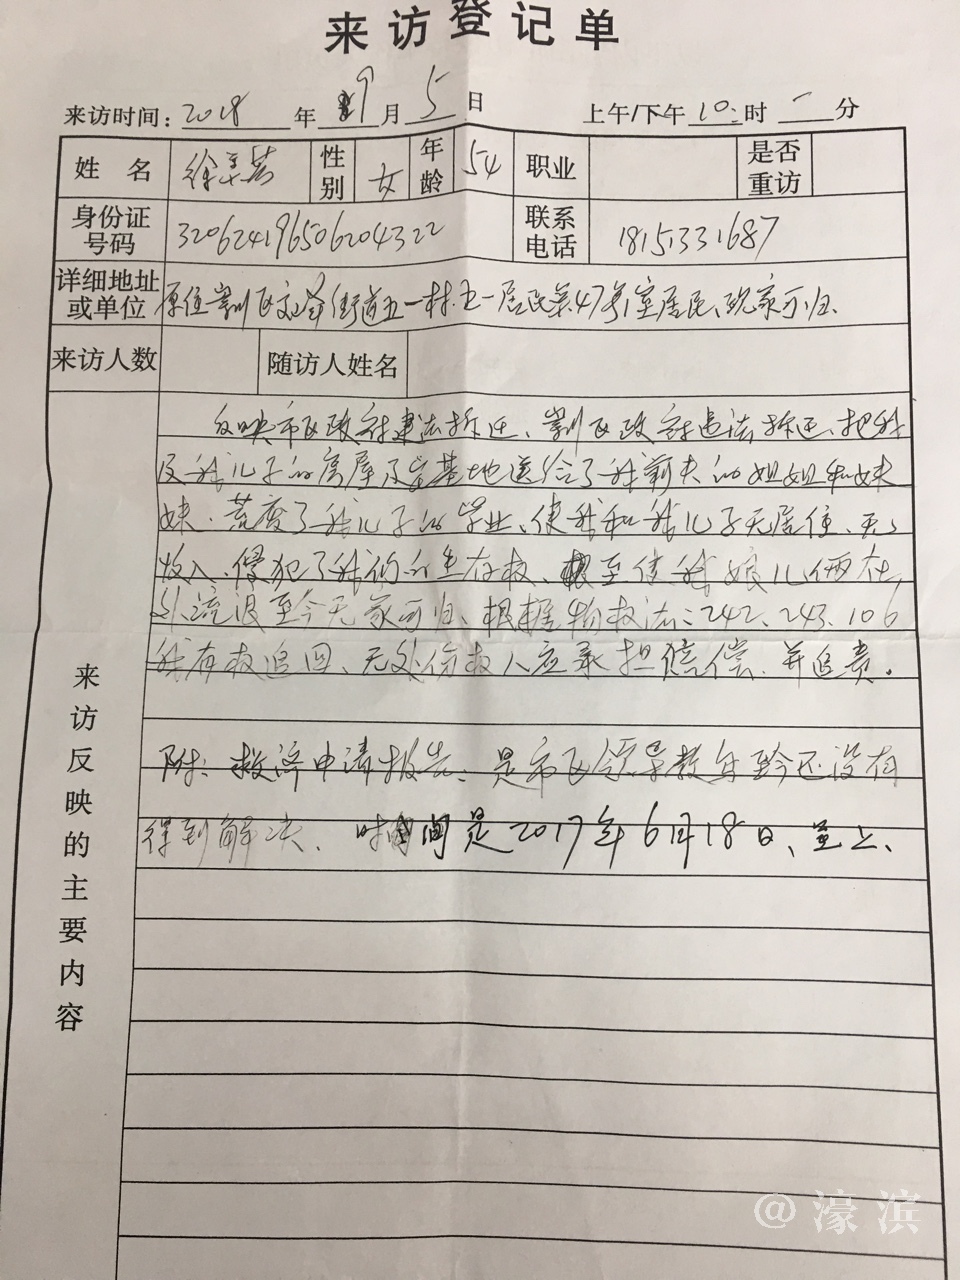 来访登记单
来访时间: 2018 年 9 月 5 日 上午/下午 10 时 一 分
姓名 徐 性别 女 年龄 54 职业 是否重访
身份证号码 320624196506204322 联系电话 18151331687
详细地址或单位 原住崇川区文峰街道五一村.五一居民第47幢1室居民、现家可归.
来访人数 随访人姓名
来访反映的主要内容
反映市区政府违法拆迁、崇川区政府违法拆迁、把我
及我儿子的房屋及宅基地送给了我前夫的姐姐和妹
妹.荒废了我儿子的学业、使我和我儿子无居住、无
收入、侵犯了我们的生存权、至使我娘儿俩在
外流浪至今无家可归、根据物权法:242、243、106
我有权追回、无处份权人应承担赔偿.并追责。
附:救济申请报告、是市区领导数年至今还没有
得到解决、时间是2017年6月18日、至上、
@濠滨